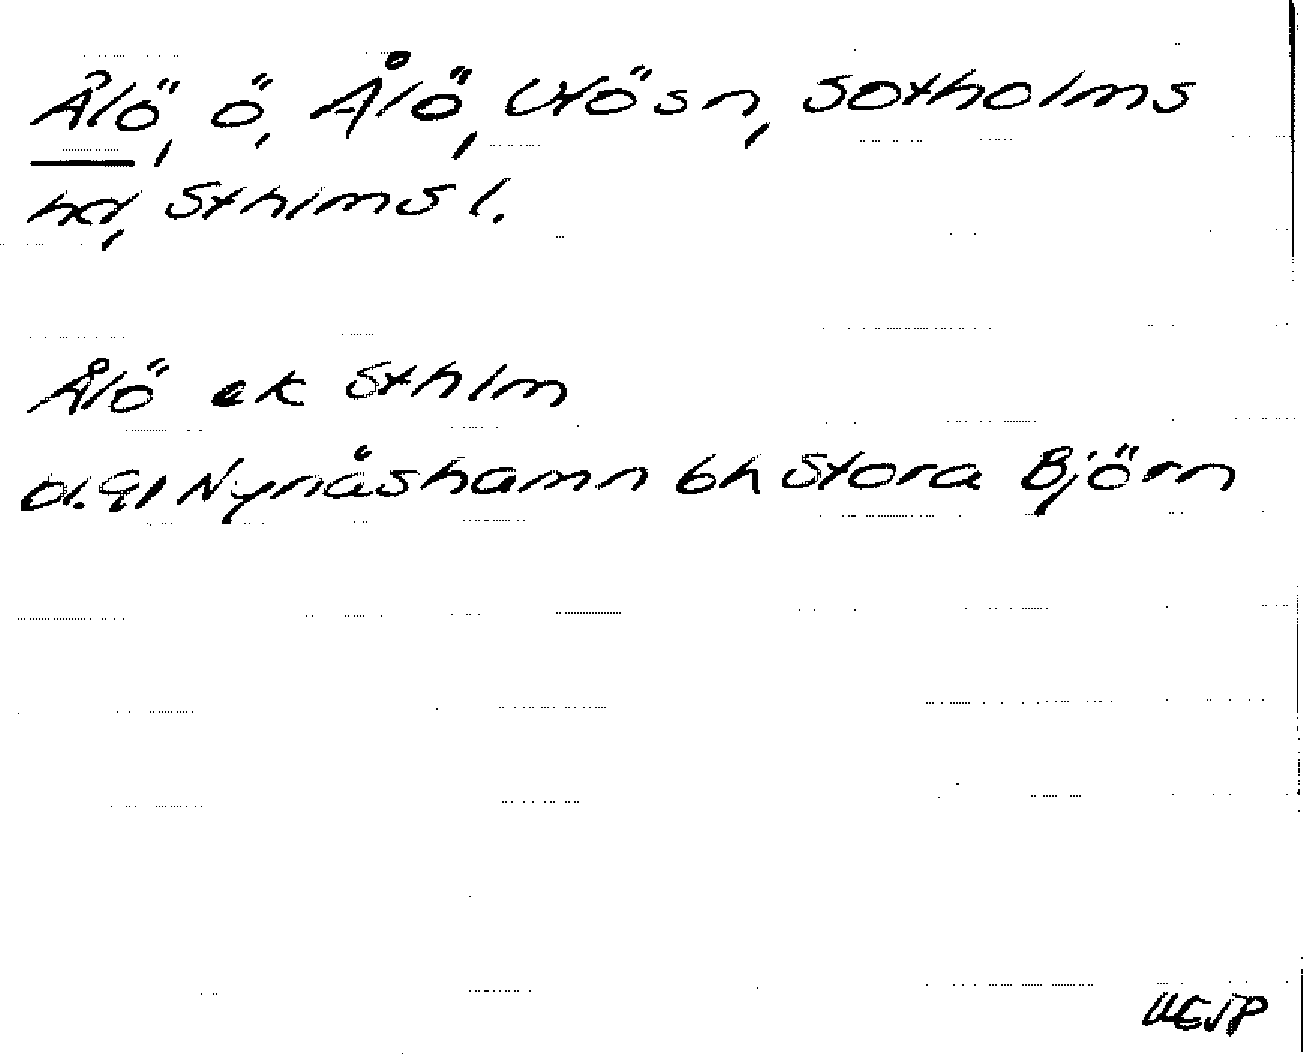 Ålö, ö, Ålö, Utö sn, Sotholms
hd, Sthlms l.
Ålö ek Sthlm
bl. 91 Nynäshamn bh Stora Björn